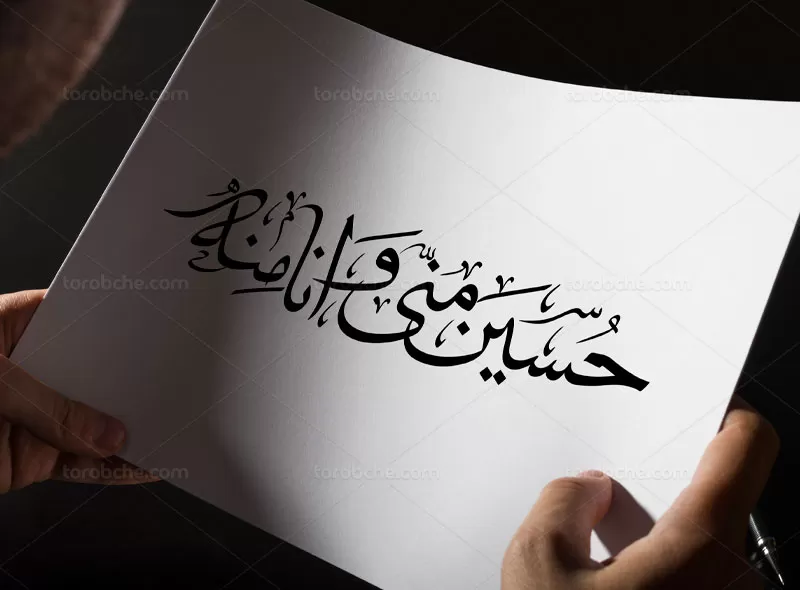 torobche.com torobche.com torobche.com
حُسَین منّی و انا مِنهُ
torobche.com torobche.com torobche.com
torobche.com torobche.com torobche.com